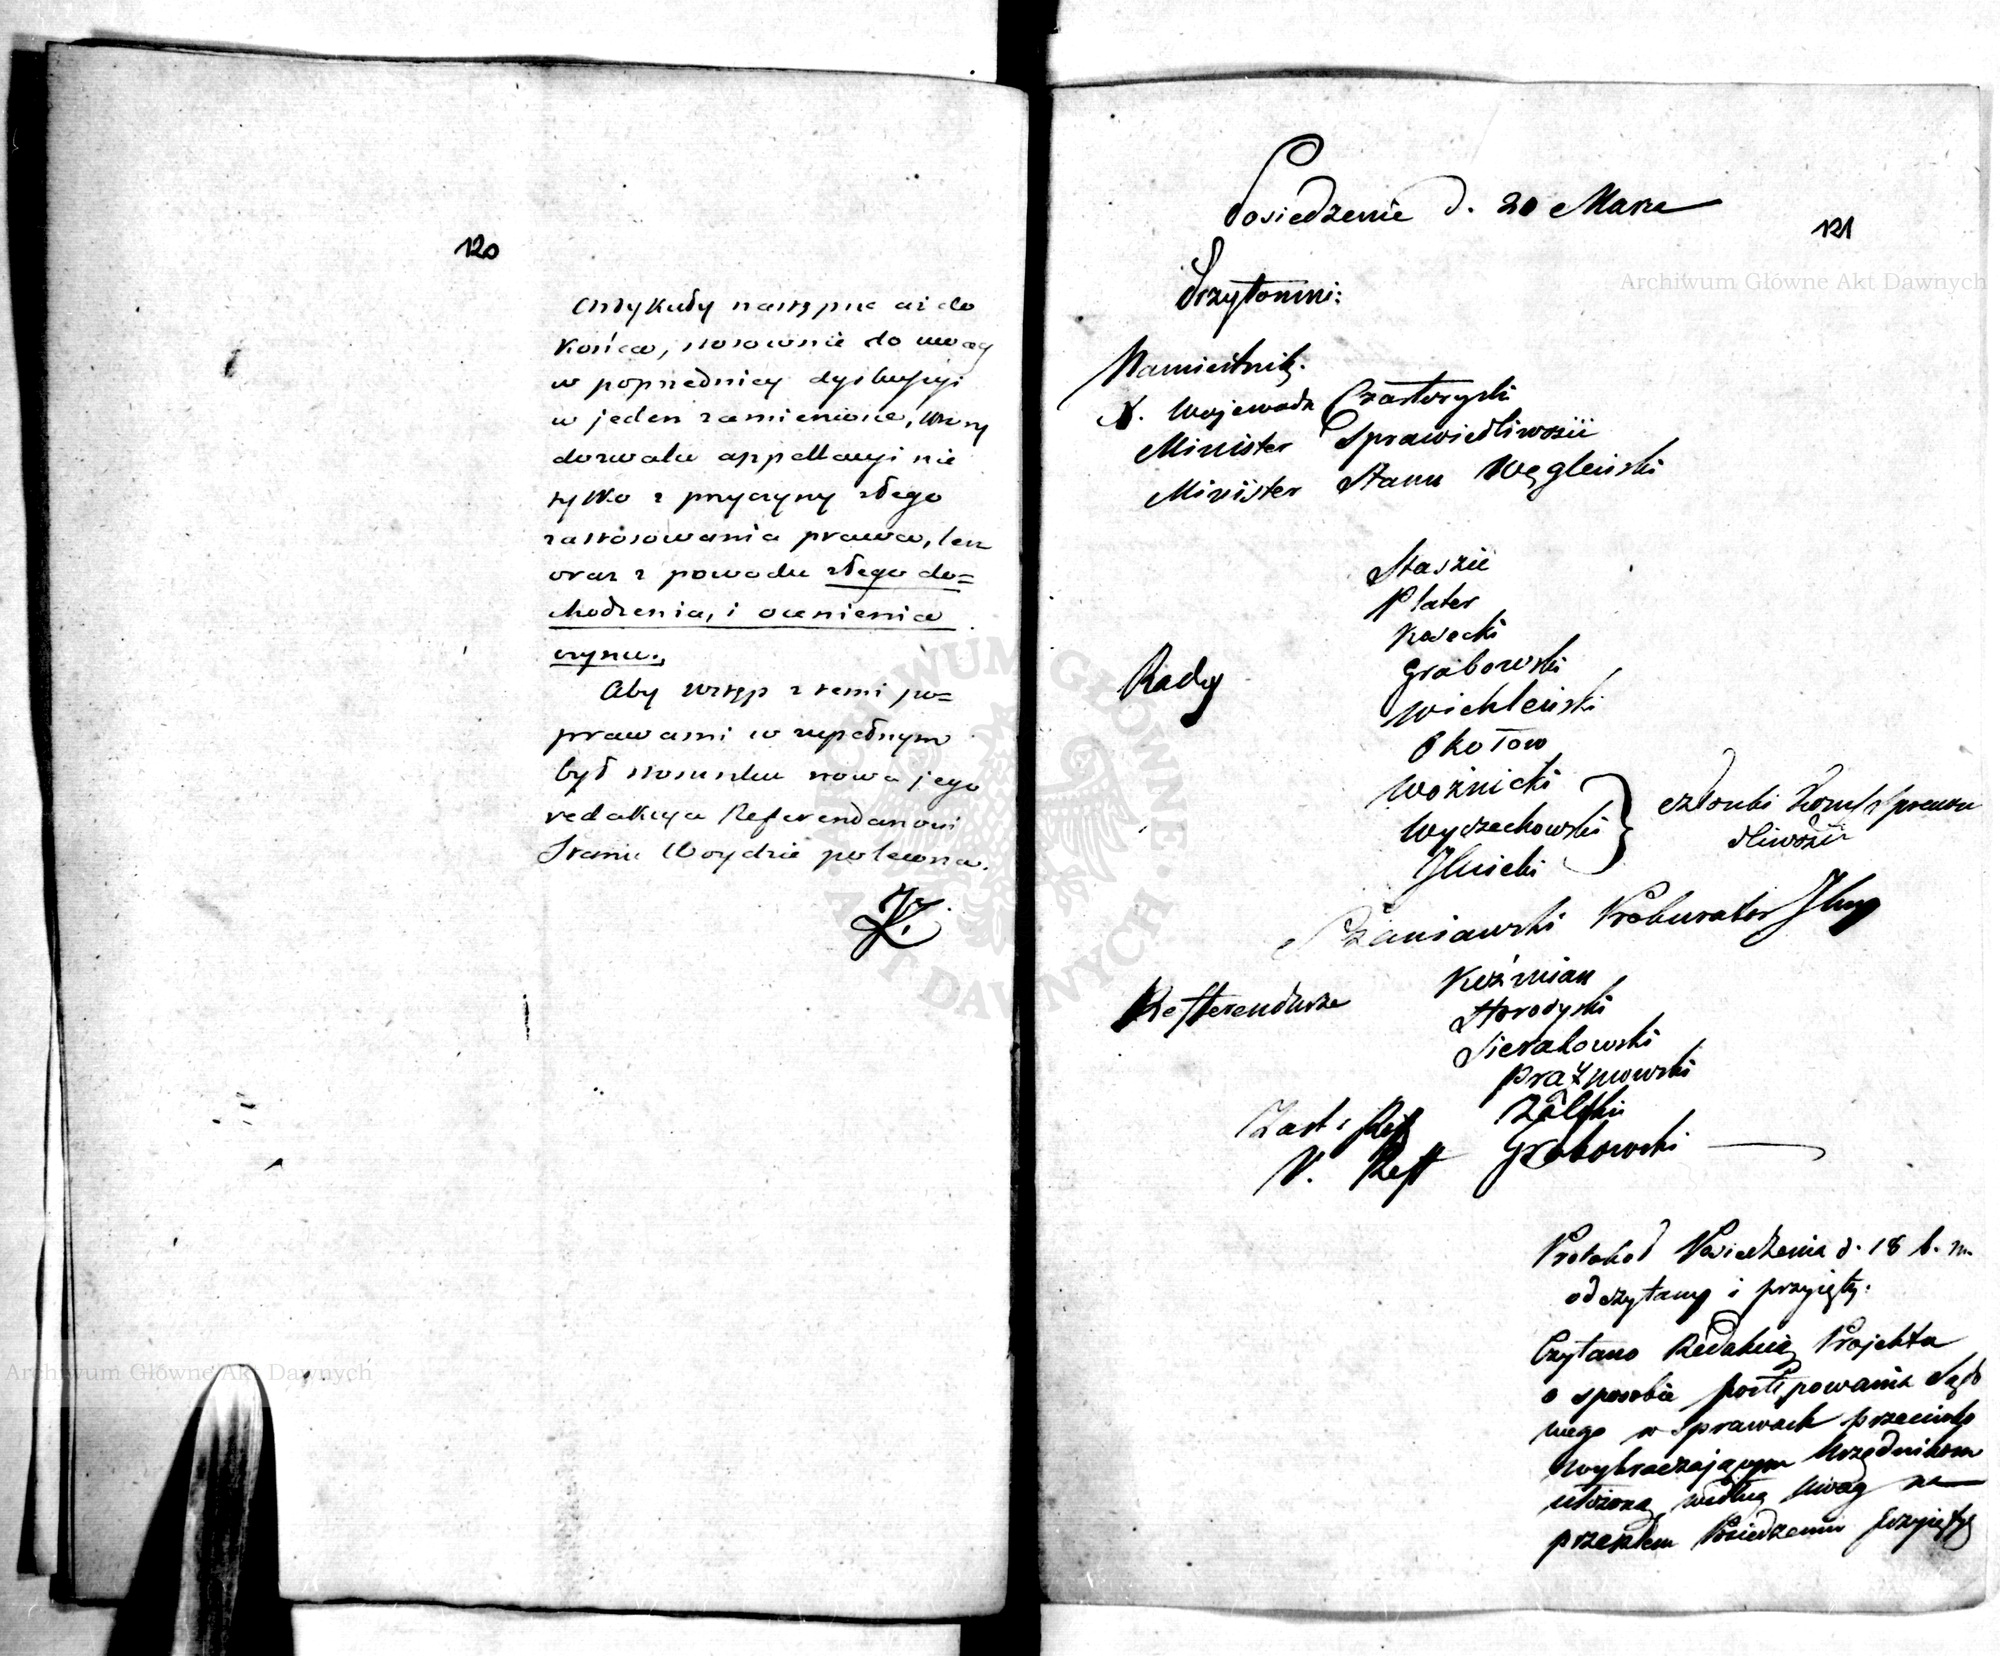 120
Artykuły następne aż do
końca, stosownie do uwag
w poprzedniey dyskussyi
w jeden zamienione, który
dozwala appellacyi nie
tylko z przyczyny złego
zastosowania prawa, lecz
oraz z powodu złego do=
chodzenia, i ocenienia
czynu.
Aby wstęp z temi po=
prawami w zupełnym
był stosunku nowa jego
redakcya Referendarzowi
Stanu Woydzie polecona.
Posiedzenie d. 20 Marca
121
Przytomni:
Namiestnik.
X. Wojewoda Czartoryski
Minister Sprawiedliwości
Minister Stanu Węgleński
Staszic
Plater
Kosecki
Rady
Grabowski
Wichleński
Okołow
Woźnicki
Wyczechowski
członki Kom Sprawie
dliwości
Szaniawski Prokurator
Koźmian
Refferendarze
Horodyski
Sierakowski
Prażmowski
Zast. Ref
V. Reff Grabowski
Protokoł Posiedzenia d. 18 b. m.
odczytany i przyięty.
Czytano Redakcią Projektu
o sposobie postępowania Sądo
wego w sprawach przeciwko
wykraczającym Urzędnikom
ułożoną według uwag na
przeszłem Posiedzeniu przyiętych
Archiwum Główne Akt Dawnych
Archiwum Główne Akt Dawnych
ARCHIWUM GŁÓWNE AKT DAWNYCH